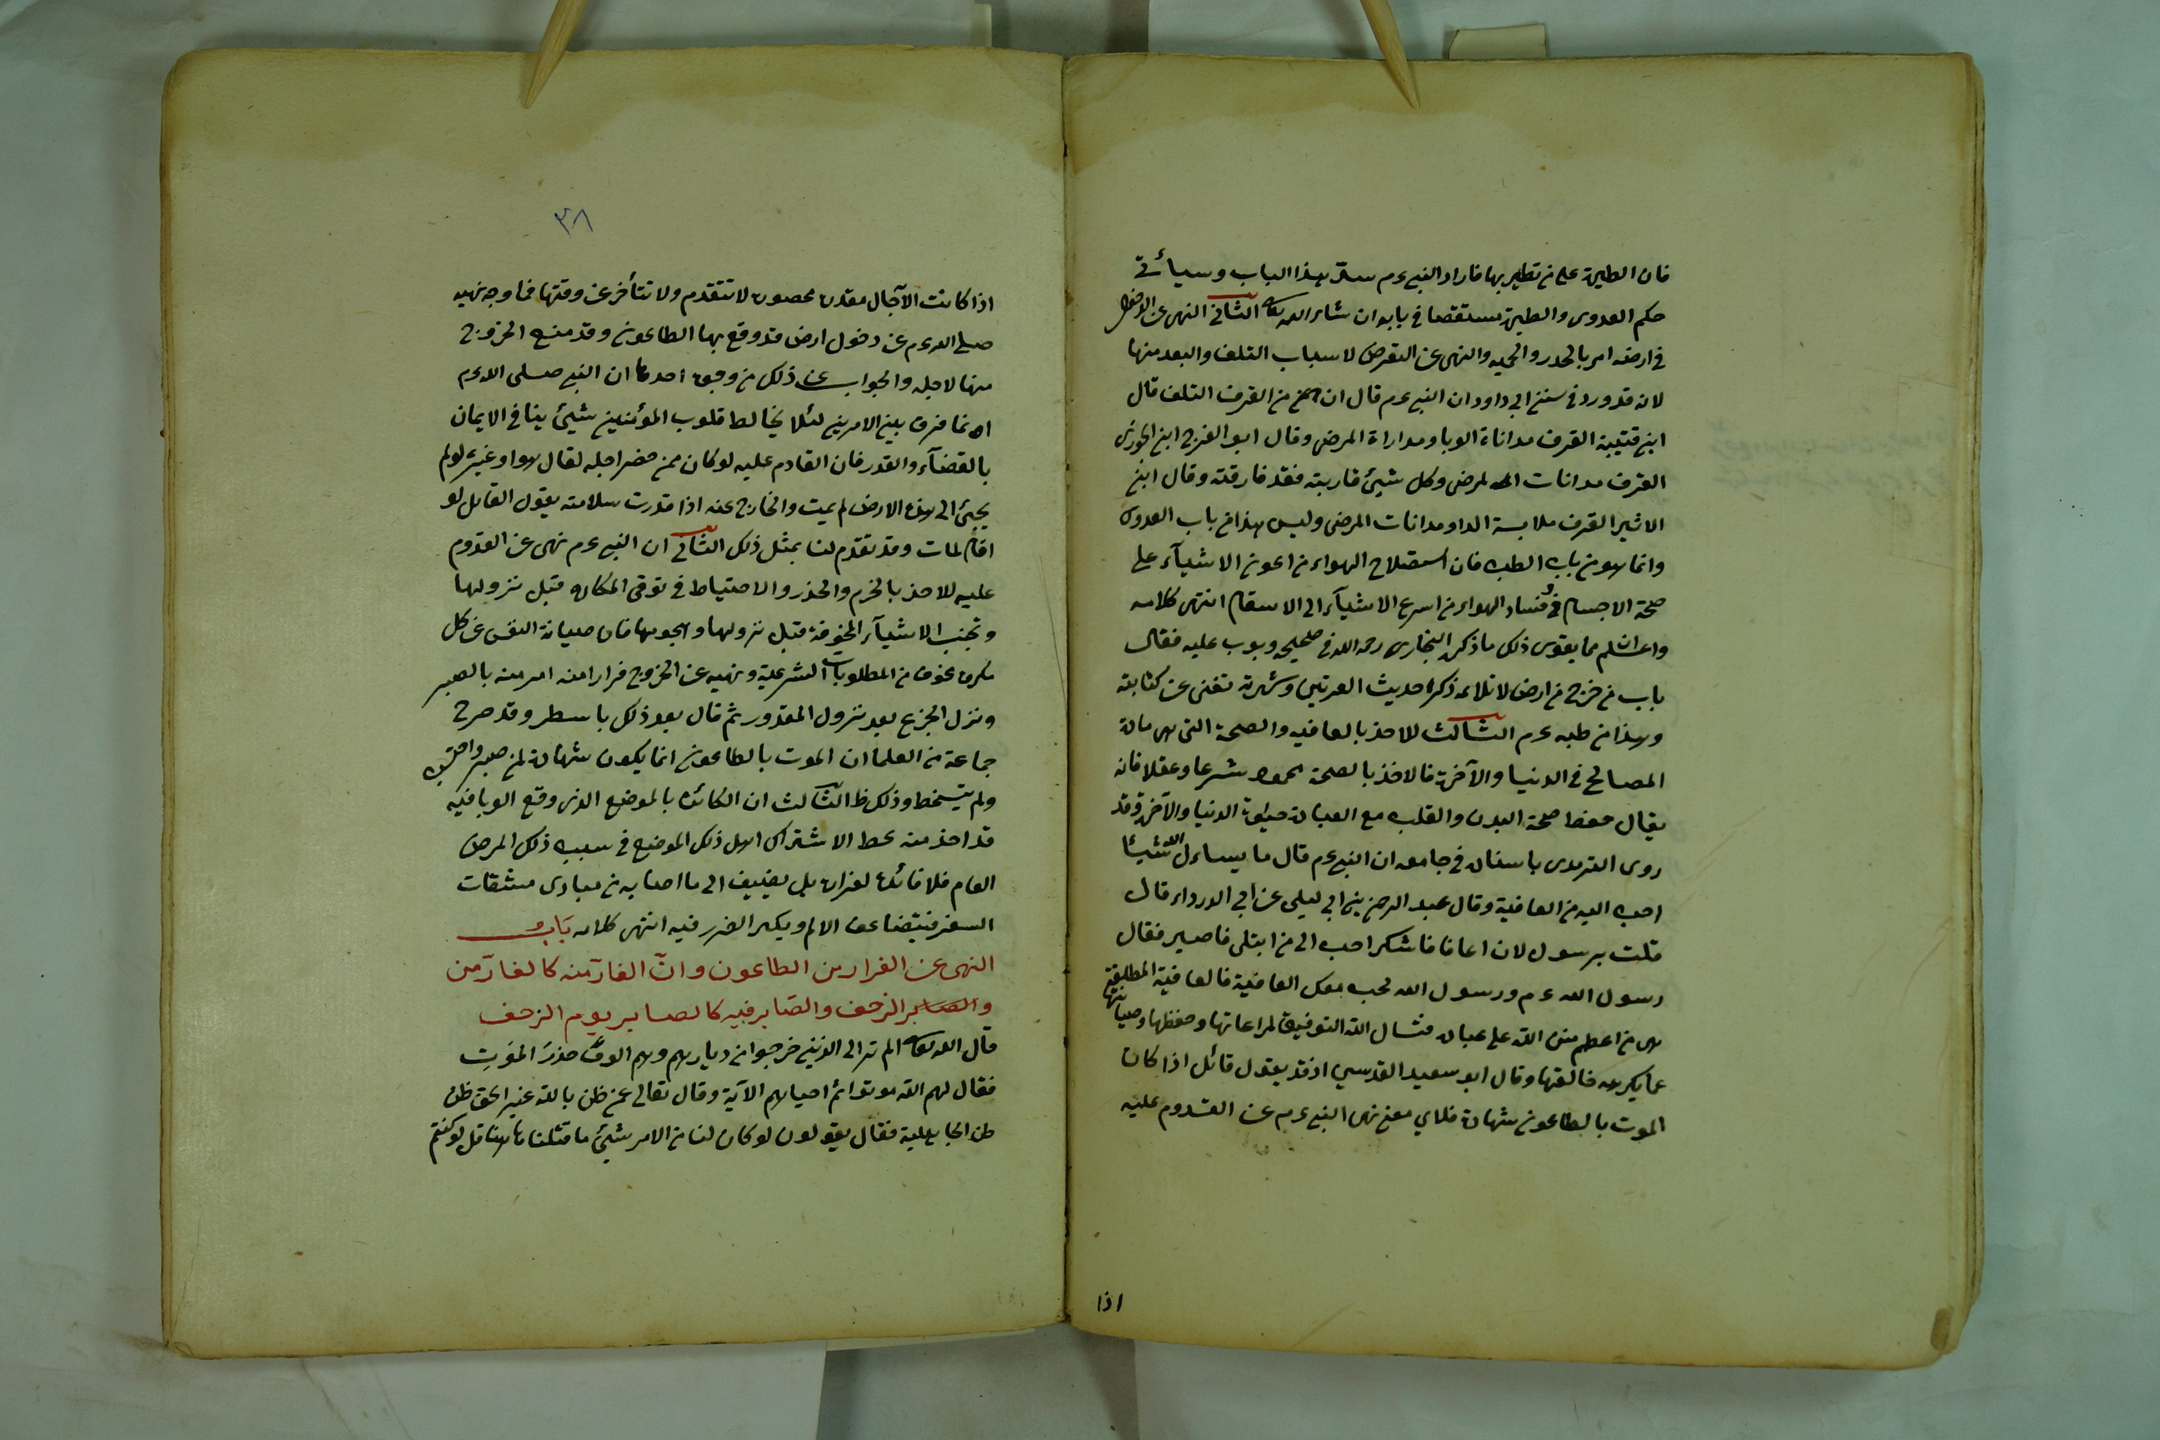 فان الطيرة على من تطير بها فاراد النبي عم سد هذا الباب وسيأتي
حكم العدوى والطيرة مستقصا في بابه ان شاء الله تعا الثاني النهي عن الدخول
في ارضه امر بالحذر والحميه والنهي عن التعرض لاسباب التلف والبعد منها
لانه قد ورد في سنن ابي داود ان النبي عم قال ان من القرف التلف قال
ابن قتيبة القرف مداناة الوبا ومداراة المرضى وقال ابو الفرج ابن الجوزي
القرف مدانات المرضى وكل شيئ قاربته فقد قارفته وقال ابن
الاثير القرف ملابسة الدا ومدانات المرضى وليس هذا من باب العدوى
وانما هو من باب الطب فان استصلاح الهواء من اعون الاشيآء على
صحة الاجسام وفساد الهواء من اسرع الاشيآء الى الاسقام انتهى كلامه
واعلم مما يقوى ذلك ما ذكره البخاري رحمه الله في صحيحه وبوب عليه فقال
باب من خرج من ارض لا تلائمه ذكر احديث العرنيي وشهرته تغنى عن كتابته
وهذا من طبه عم الثالث للاخذ بالعافيه والصحة التي هي مادة
المصالح في الدنيا والآخرة فالاخذ بالصحة محمود شرعا وعقلا فانه
يقال حفظ صحة البدن والقلب مع العبادة حيوة الدنيا والآخرة وقد
روى الترمدي باسناده في جامعه ان النبي عم قال ما يسال الله شيئا
احب اليه من العافية وقال عبد الرحمن بن ابي ليلى عن ابي الدرداء قال
قلت يرسول لان اعافا فاشكر احب الى من ابتلى فاصبر فقال
رسول الله عم ورسول الله يحب معك العافية فالعافية المطلقة
هي من اعظم منن الله على عباده فنسال الله التوفيق لمراعاتها وحفظها وصيانتها
عما يكرهه خالقها وقال ابو سعيد القدسي اذ قد يقول قائل اذا كان
الموت بالطاعون شهادة فلاي معنى نهى النبي عم عن القدوم عليه
اذا
٣٨
اذا كانت الآجال مقدرة محصورة لا تتقدم ولا تتأخر عن وقتها فما وجه نهيه
صلى الله عم عن دخول ارض قد وقع بها الطاعون وقد منع الخروج
منها لاجله والجواب عن ذلك من وجوه احدها ان النبي صلى الله عم
انما فرق بين الامرين لئلا يخالط قلوب المؤمنين شيئ ينافي الايمان
بالقضآء والقدر فان القادم عليه لو كان ممن حضر اجله لقال هو او غيره لو لم
يجئ الى هذه الارض لم يمت والخارج عنه اذا قدرت سلامته يقول القائل لو
اقام لمات وقد تقدم لنا بمثل ذلك الثاني ان النبي عم نهى عن القدوم
عليه للاخذ بالحزم والحذر والاحتياط في توقي المكاره قبل نزولها
وتجنب الاشيآء المخوفة قبل نزولها وهجومها فان صيانة النفس عن كل
مكروه مخوف من المطلوبات الشرعية ونهيه عن الخروج فرارا منه امر منه بالصبر
ونزل الجزع بعد نزول المقدور ثم قال بعد ذلك باسطر وقد صرح
جماعة من العلما ان الموت بالطاعون انما يكون شهادة لمن صبر واحتسب
ولم يتسخط وذلك ظ الثالث ان الكائن بالموضع الذي وقع الوبا فيه
قد اخذ منه بحط الاشتراك اهل ذلك الموضع في سبب ذلك المرض
العام فلا فائدة لفراره بل يضيف الى ما اصابه من مبادى مشقات
السفر فيتضاعف الالم ويكبر الضرر فيه انتهى كلامه باب
النهى عن الفرار من الطاعون وانّ الفارّ منه كالفارّ من
الزحف والصّابر فيه كالصابر يوم الزحف
قال الله تعا الم تر الى الذين خرجوا من ديارهم وهم الوف حذر الموت
فقال لهم الله موتوا ثم احياهم الآية وقال تعالى عن ظن بالله غير الحق ظن
ظن الجاهلية فقال يقولون لو كان لنا من الامر شيئ ما قتلنا هاهنا قل لو كنتم